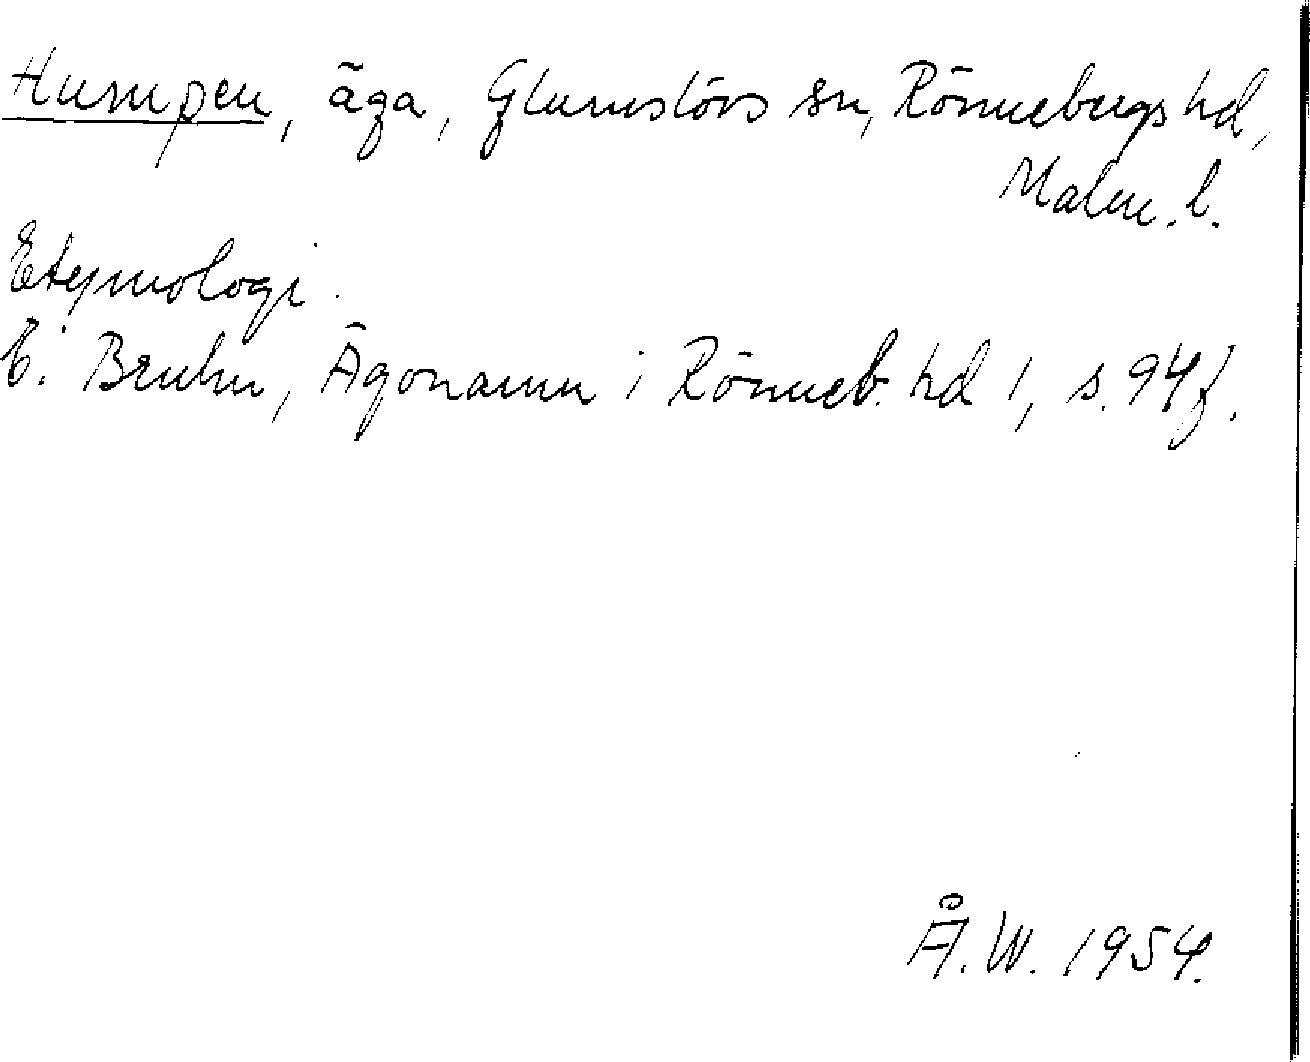 Humpen, äga, Glumslövs sn, Rönnebergs hd,
Malm. l.
Etymologi.
E. Bruhn, Ägonamn i Rönneb. hd 1, s. 94 f.
Å. W. 1954.